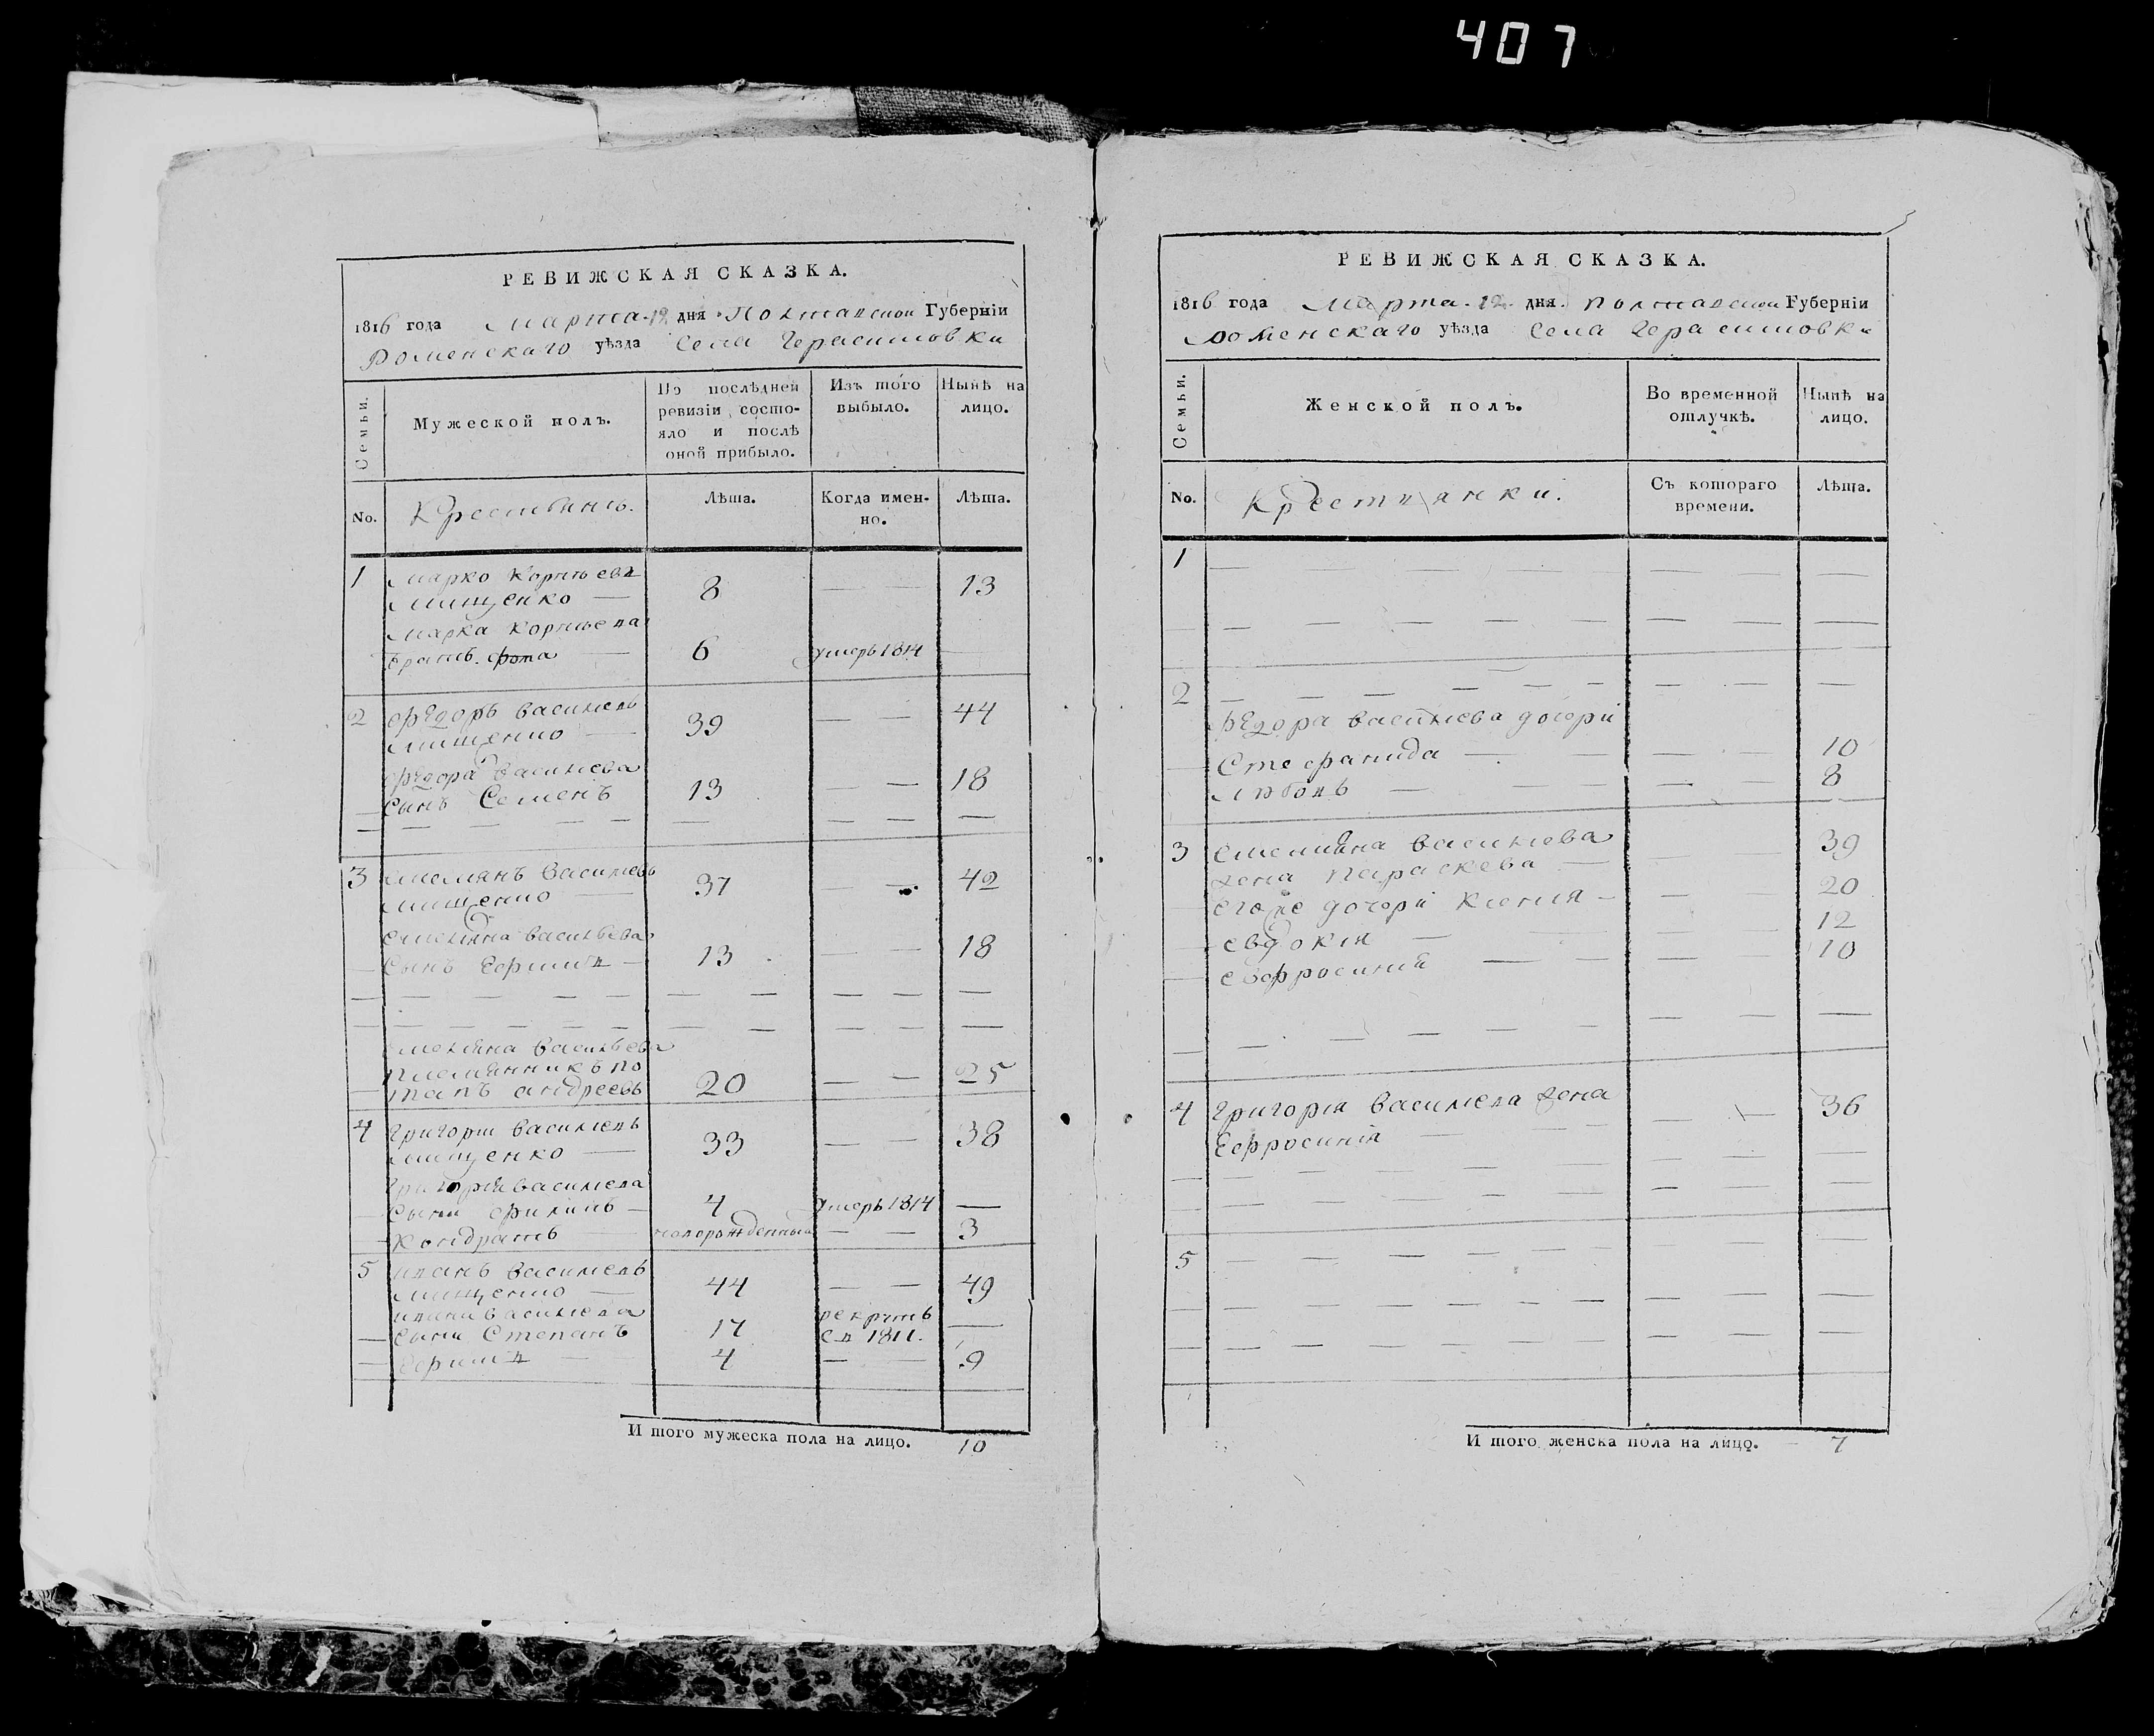 407
РЕВИЖСКАЯ СКАЗКА.
1816 года Марта 12 дня Полтавской Губерніи
Роменскаго уѣзда Села Герасимовки
Семьи.
Мужеской полъ.
По послѣдней ревизіи состо-
яло и послѣ
оной прибыло.
Изъ того
выбыло.
Нынѣ на
лицо.
No.
Крестьянъ.
Лѣта.
Когда имен-
но.
Лѣта.
1 Марко Корнѣевъ
Мищенко 8 — — 13
Марка Корнѣева
братъ Фома 6 умеръ 1814 —
2 Федоръ Васильевъ
Мищенко 39 — — 44
Федора Васильева
сынъ Семенъ 13 — — 18
3 Емелянъ Васильевъ
Мищенко 37 — — 42
Емеляна Васильева
сынъ Ефимъ 13 — — 18
Емеляна Васильева
племянникъ По
тапъ Андреевъ 20 — — 25
4 Григорій Васильевъ
Мищенко 33 — — 38
Григорія Васильева
сыны Филипъ 4 умеръ 1814 —
Кондратъ новорожденный — — 3
5 Иванъ Васильевъ
Мищенко 44 — — 49
Ивана Васильева
сыны Степанъ 17 рекрутъ
съ 1811. —
Ефимъ 4 — — 9
И того мужеска пола на лицо. 10
РЕВИЖСКАЯ СКАЗКА.
1816 года Марта 12 дня Полтавской Губерніи
Роменскаго уѣзда Села Герасимовки
Семьи.
Женской полъ.
Во временной
отлучкѣ.
Нынѣ на
лицо.
No.
Крестянки.
Съ котораго
времени.
Лѣта.
1
2
Федора Васильева дочери
Стефанида — — 10
Любовь — — 8
3 Емеляна Васильева
жена Параскева — — 39
его же дочери Ксенія — — 20
Евдокія — — 12
Евфросинія — — 10
4 Григорія Васильева жена
Ефросинія — — 36
5
И того женска пола на лицо. 7